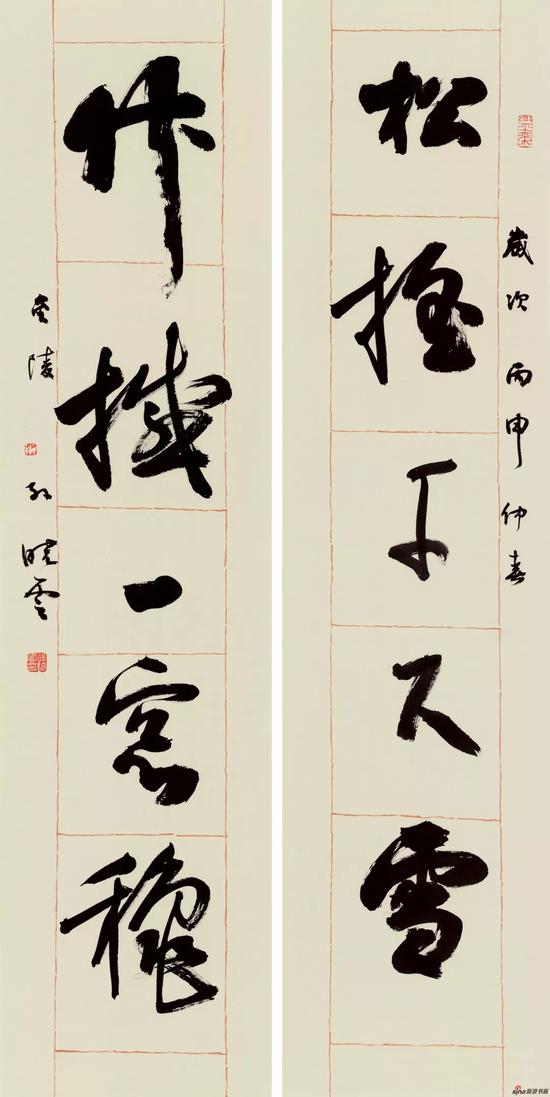 松摇千尺雪
竹撼一窗穐
歲次丙申仲春
金陵孙晓雲
sina新浪书画